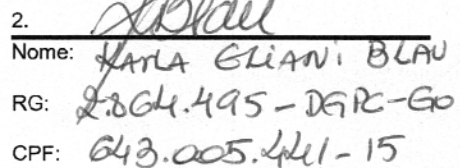 2. KBlau
Nome: KARLA ELIANI BLAU
RG: 2.864.495 - DGPC-GO
CPF: 643.005.441-15